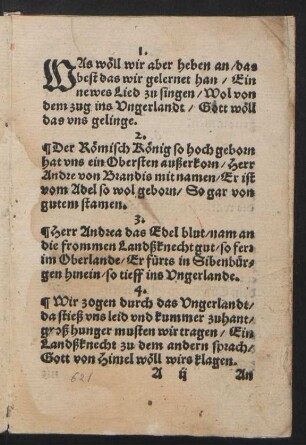 1.
WAs wöll wir aber heben an/das
best das wir gelernet han/Ein
newes Lied zu singen/Wol von
dem zug ins Vngerlandt/Gott wöll
das vns gelinge.
2.
¶Der Römisch König so hoch geborn
hat vns ein Obersten außerkorn/Herr
Andre von Brandis mit namen/Er ist
vom Adel so wol geborn/So gar von
gutem stamen.
3.
¶Herr Andrea das Edel blut/nam an
die frommen Landßknecht gut/so fern
im Oberlande/Er fürts in Sibenbür-
gen hinein/so tieff ins Vngerlande.
4.
¶Wir zogen durch das Vngerlandt/
da stieß vns leid vnd kummer zuhant/
groß hunger musten wir tragen/Ein
Landßknecht zu dem andern sprach/
Gott von Himel wöll wirs klagen.
A ij An
621